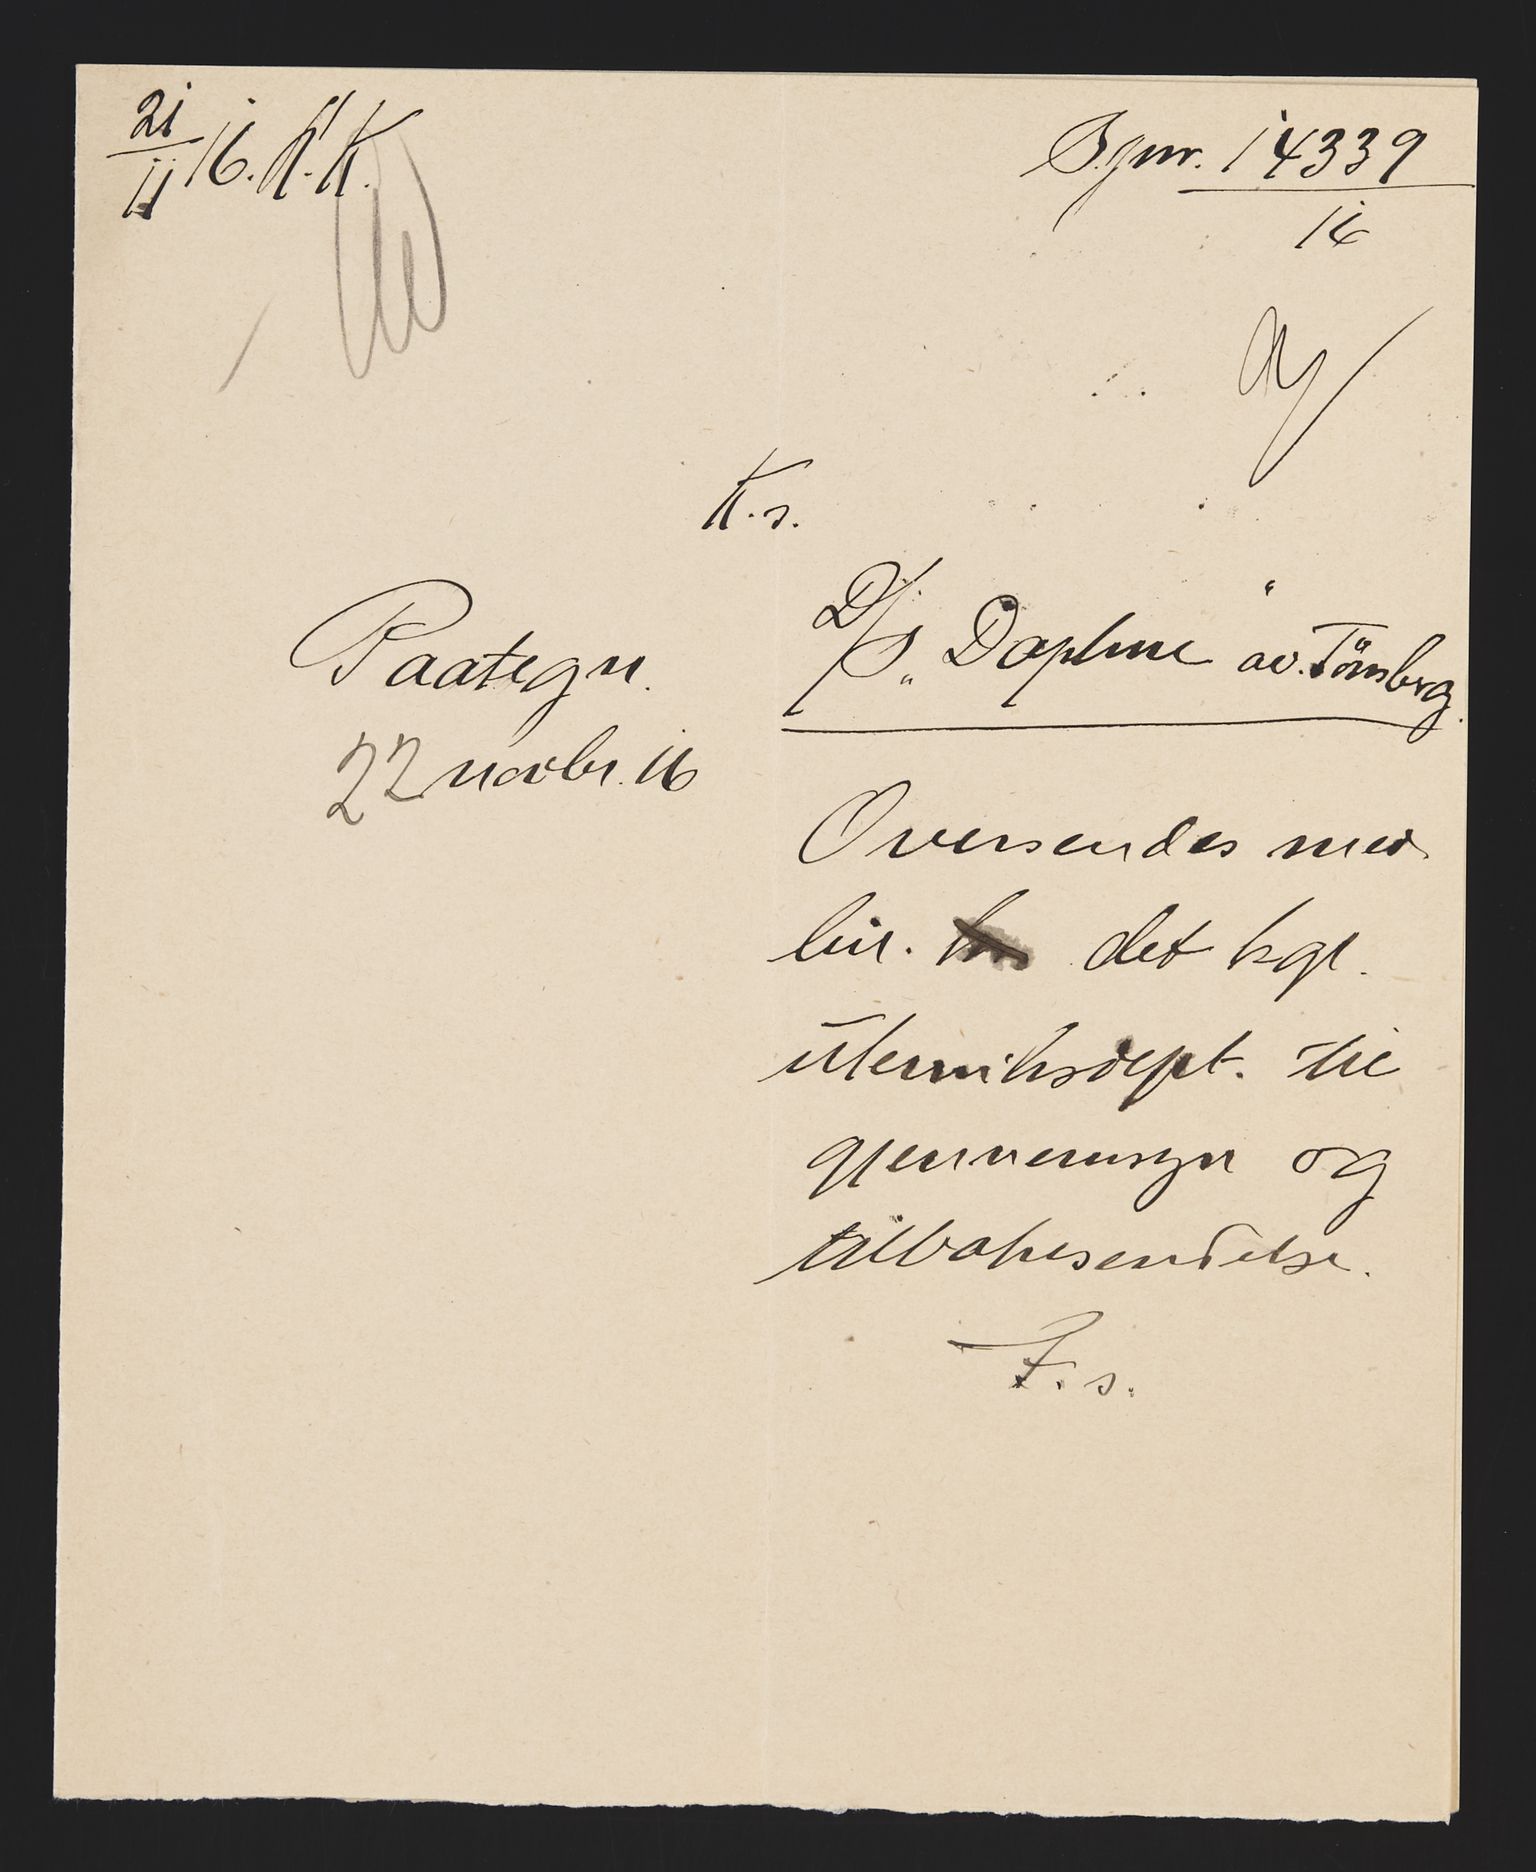 21/11 16. K.K.
S.jnr. 14339
16
K.s.
Paategn.
22 novbr. 16
D/S „Daphne“ av Tönsberg.
Oversendes med
bil. det kgl.
utenriksdept. til
gjennemsyn og
tilbakesendelse.
F. s.